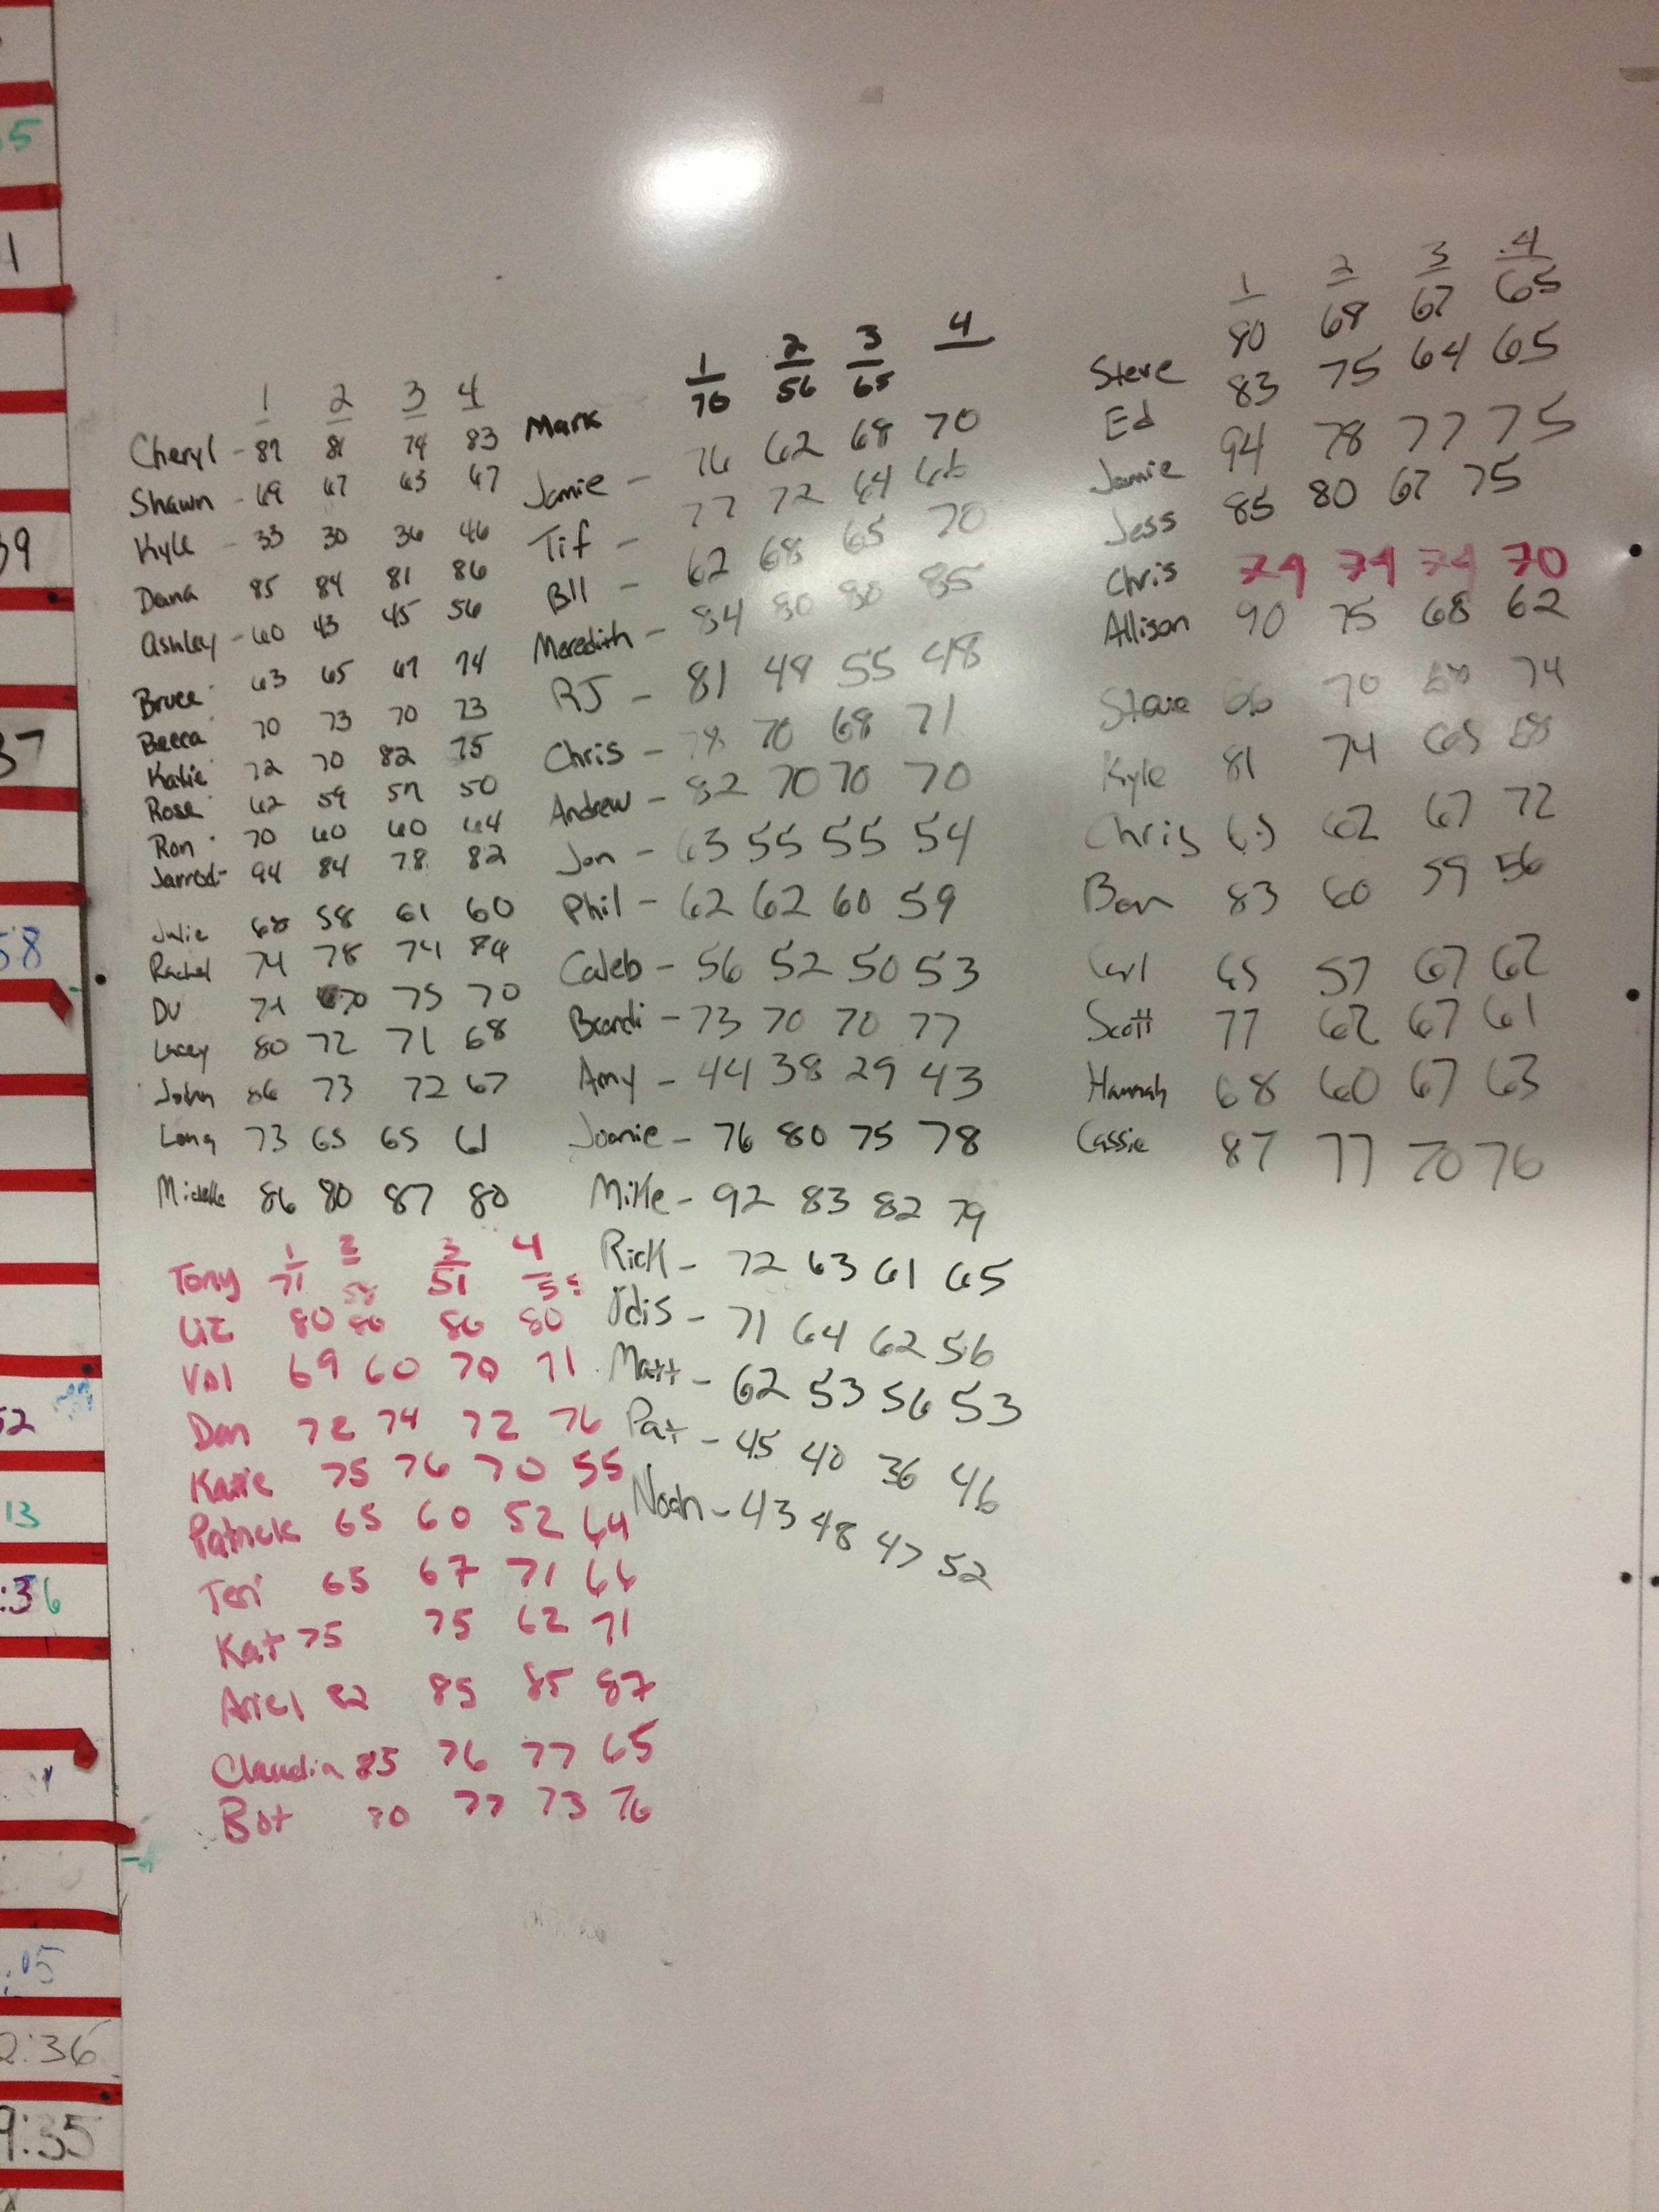 1 2 3 4
Cheryl - 87 81 74 83
Shawn - 69 67 63 67
Kyle - 33 30 36 46
Dana 85 84 81 86
Ashley - 60 43 45 56
Bruce 63 65 67 74
Becca 70 73 70 73
Katie 72 70 82 75
Rose 62 59 57 50
Ron 70 60 60 64
Jarrod - 94 84 78 82
Julie 68 58 61 60
Rachel 74 78 74 84
DV 71 70 75 70
Lacey 80 72 71 68
John 86 73 72 67
Long 73 65 65 61
Michelle 86 80 87 80
1 2 3 4
Tony 71 58 51
Liz 80 80 80 80
Val 69 60 70 71
Dan 72 74 72 76
Katie 75 76 70 55
Patrick 65 60 52 64
Teri 65 67 71 66
Kat 75 75 62 71
Ariel 82 85 85 87
Claudia 85 76 77 65
Bot 77 73 76
1 2 3 4
Mark 70 56 65
Jamie - 76 62 68 70
Tif - 77 72 64 66
Bll - 62 68 65 70
Meredith - 84 80 80 85
RJ - 81 48 55 48
Chris - 78 70 68 71
Andrew - 82 70 70 70
Jon - 63 55 55 54
Phil - 62 62 60 59
Caleb - 56 52 50 53
Brandi - 73 70 70 77
Amy - 44 38 29 43
Joanie - 76 80 75 78
Mike - 92 83 82 79
Rick - 72 63 61 65
Odis - 71 64 62 56
Matt - 62 53 56 53
Pat - 45 40 36 46
Noah - 43 48 47 52
1 2 3 4
Steve 80 68 67 65
Ed 83 75 64 65
Jamie 94 78 77 75
Jess 85 80 67 75
Chris 74 74 74 70
Allison 90 75 68 62
Steve 66 70 74
Kyle 81 74 65 68
Chris 65 62 67 72
Ben 83 60 59 56
Carl 65 57 67 62
Scott 77 62 67 61
Hannah 68 60 67 63
Cassie 87 77 70 76
5
1
39
37
58
52
13
:36
:05
2:36
9:35